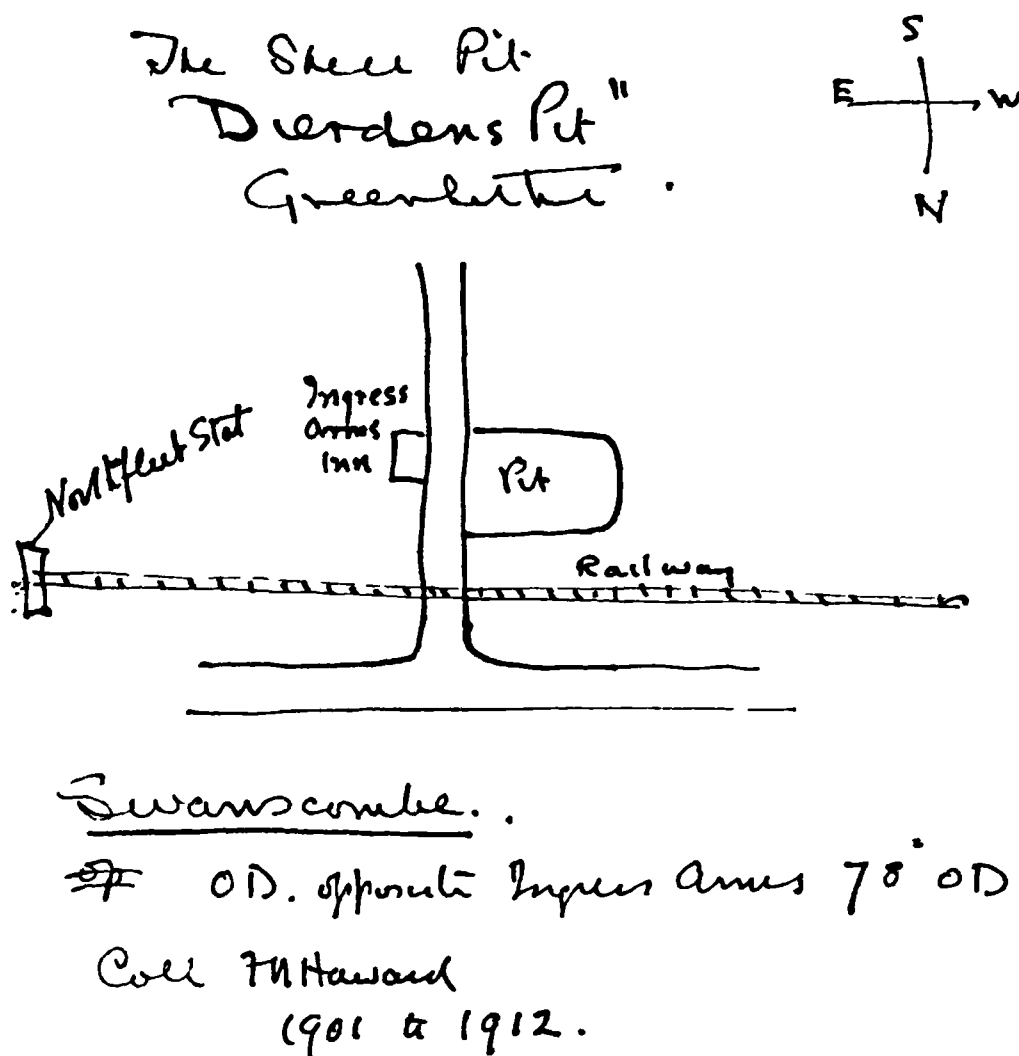 The Shell Pit
Dierdens Pit"
Greenhithe.
S
E W
N
Ingress
Arms
Inn
Northfleet Stat
Pit
Railway
Swanscombe..
OD. opposite Ingress Arms 78' OD
Coll FN Haward
1901 to 1912.